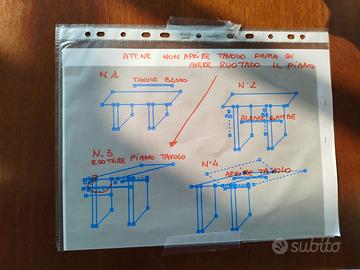 ATTNE NON APRIRE TAVOLO PRIMA DI
AVERE RUOTATO IL PIANO
N°1
TAVOLO BASSO
N°2
ALZARE GAMBE
N.3
RUOTARE PIANO TAVOLO
N°4
APRIRE TAVOLO
subito